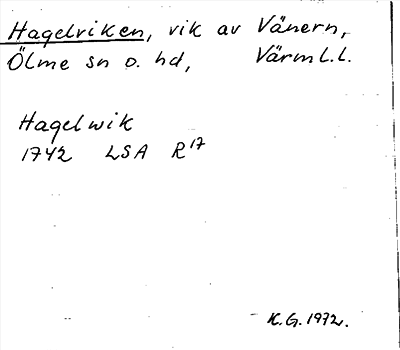 Hagelviken, vik av Vänern,
Ölme sn o. hd, Värml.l.
Hagelwik
1742 LSA R17
K.G. 1972.